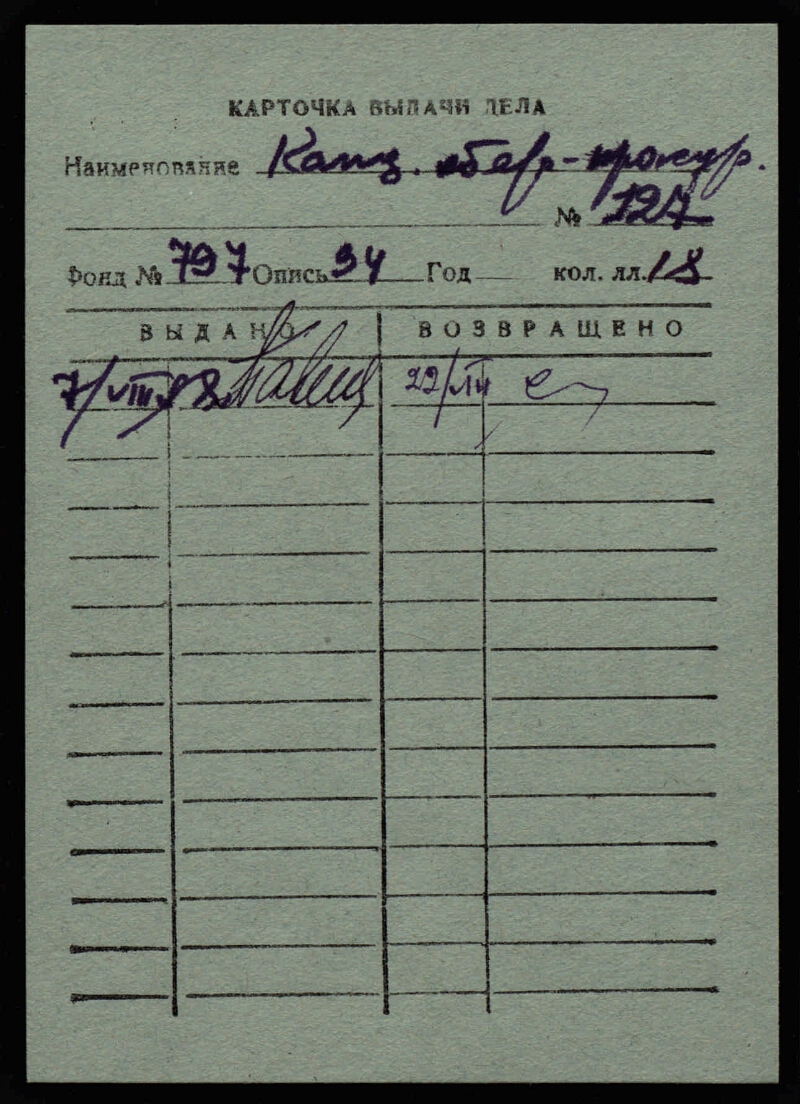 КАРТОЧКА ВЫДАЧИ ДЕЛА
Наименование Канц. обер-прокур.
№ 127
Фонд № 797 Опись 34 Год кол. лл. 18
ВЫДАНО ВОЗВРАЩЕНО
7/VIII 22/VIII